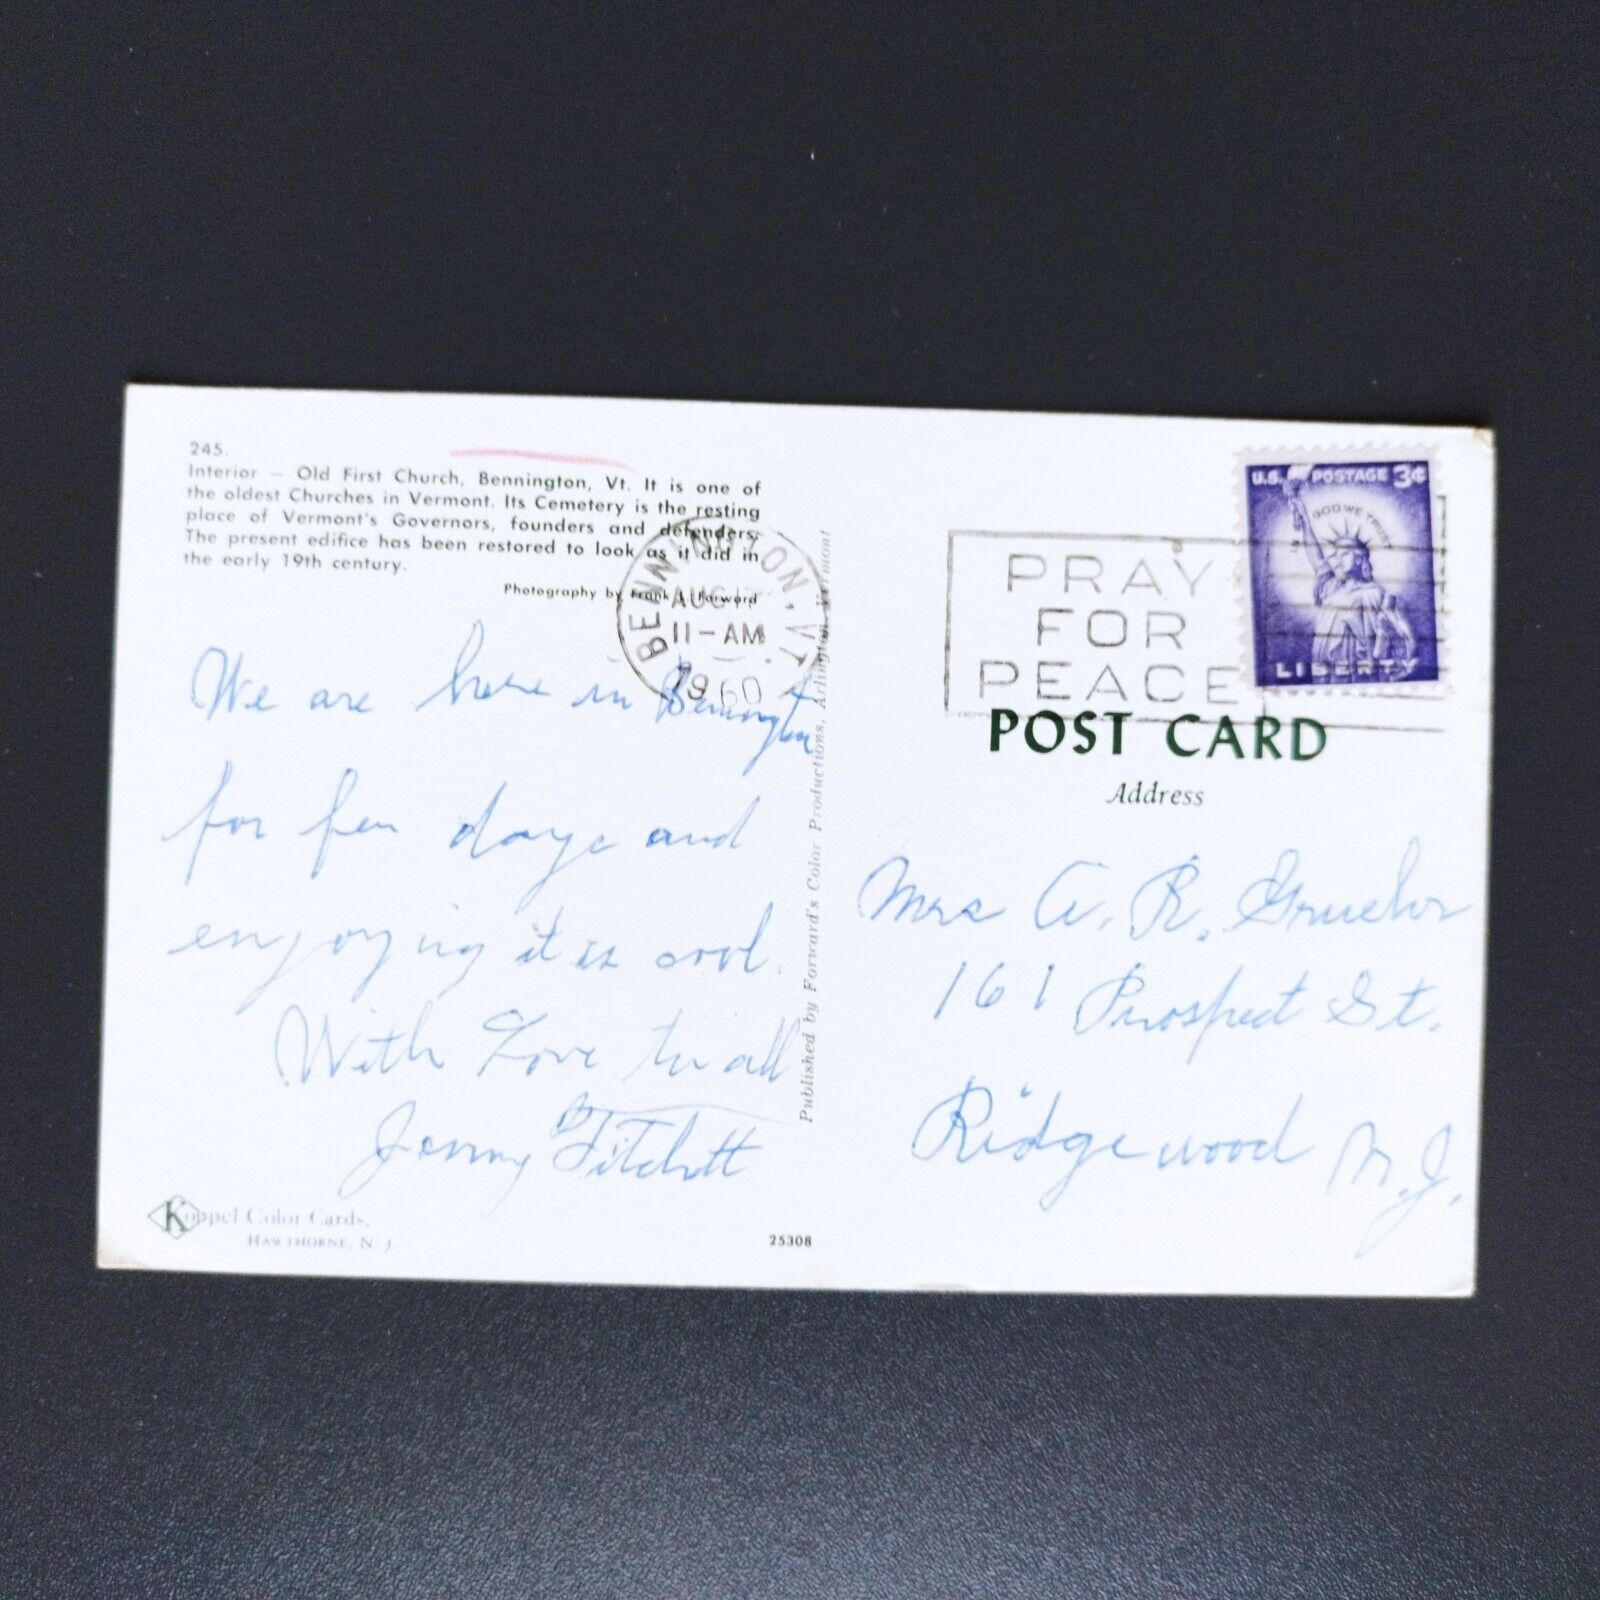 245.
Interior — Old First Church, Bennington, Vt. It is one of
the oldest Churches in Vermont. Its Cemetery is the resting
place of Vermont's Governors, founders and defenders.
The present edifice has been restored to look as it did in
the early 19th century.
Photography by Frank L. Forward
BENNINGTON. VT.
AUG 17
11-AM
1960
We are here in Bennington
for few days and
enjoying it is cool.
With Love to all
Jenny Fitchett
Koppel Color Cards.
HAWTHORNE, N J
25308
Published by Forward's Color Productions, Arlington, Vermont
PRAY
FOR
PEACE
U.S. POSTAGE 3¢
IN GOD WE TRUST
LIBERTY
POST CARD
Address
Mrs A. R.
161 Prospect St.
Ridgewood N.J.